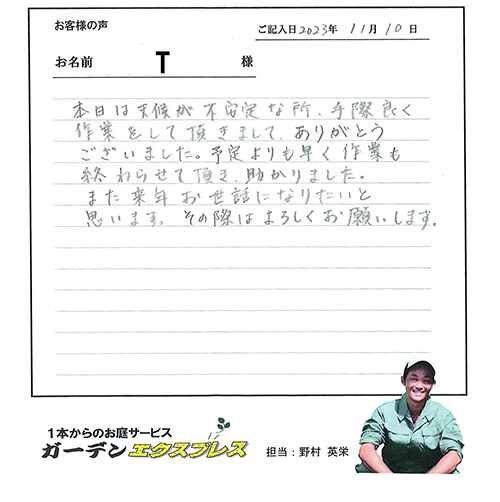 お客様の声
ご記入日2023年 11月 10日
お名前 T 様
本日は天候が不安定な所、手際良く
作業をして頂きまして、ありがとう
ございました。予定よりも早く作業も
終わらせて頂き、助かりました。
また来年お世話になりたいと
思います。その際はよろしくお願いします。
1本からのお庭サービス
ガーデンエクスプレス
担当：野村 英栄